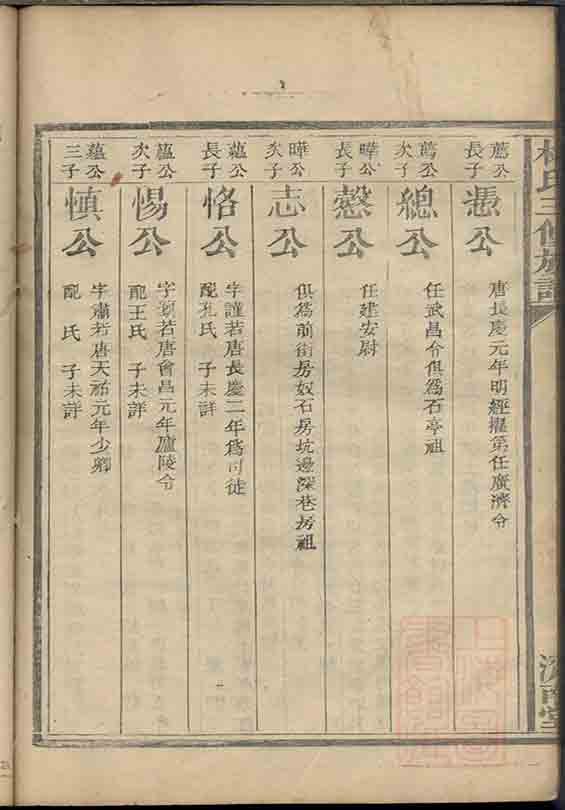 林氏三修族譜
濟南堂
薦公
長子
憑公
唐長慶元年明經擢第任廣濟令
薦公
次子
總公
任武昌令俱為石亭祖
曄公
長子
慤公
任建安尉
曄公
次子
志公
俱為前街房奴石房坑邊深巷房祖
蘊公
長子
恪公
字謹若唐長慶二年為司徒
配孔氏 子未詳
蘊公
次子
惕公
字若唐會昌元年廬陵令
配王氏 子未詳
蘊公
三子
慎公
字肅若唐天祐元年少卿
配 氏 子未詳